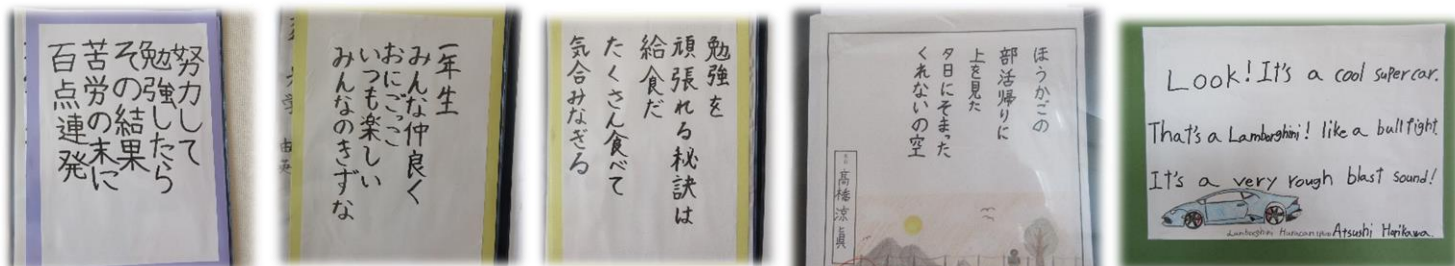 努力して
勉強したら
その結果
苦労の末に
百点連発
一年生
みんな仲良く
おにごっこ
いつも楽しい
みんなのきずな
勉強を
頑張れる秘訣は
給食だ
たくさん食べて
気合みなぎる
ほうかごの
部活帰りに
上を見た
夕日にそまった
くれないの空
高橋涼眞
Look! It's a cool super car.
That's a Lamborghini! like a bull fight
It's a very rough blast sound!
Lamborghini Huracan
Atsushi Horikawa